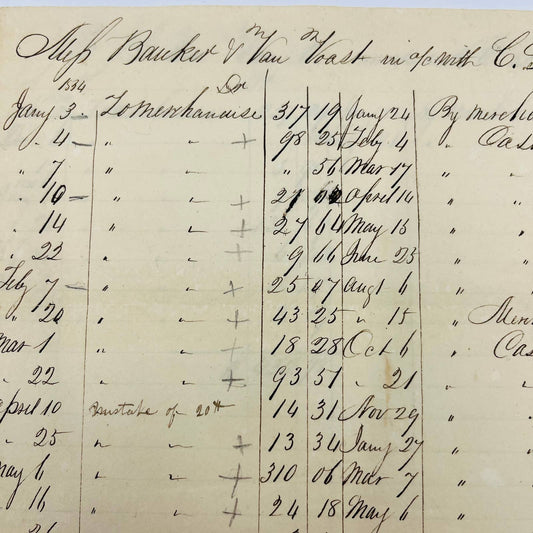 Messrs Banker & Van Voast in a/c with C.
1834 Dr
Jany 3 To merchandise 317 19 Jany 24 By merch
" 4 " " + 98 25 Feby 4 " Cas
" 7 " " " 56 Mar 17 " "
" 10 " " + 27 April 14 " "
" 14 " " + 27 64 May 15 " "
" 22 " " + 9 66 June 23 " "
Feby 7 " " + 25 07 Augt 6 " "
" 20 " " + 43 25 " 15 " Mer
Mar 1 " " + 18 28 Oct 6 " Cas
" 22 " " + 93 51 " 21 " "
April 10 of 20th 14 31 Nov 29 " "
" 25 " " + 13 34 Jany 27 " "
May 6 " " + 310 06 Mar 7 " "
" 16 " " + 24 18 May 6 "